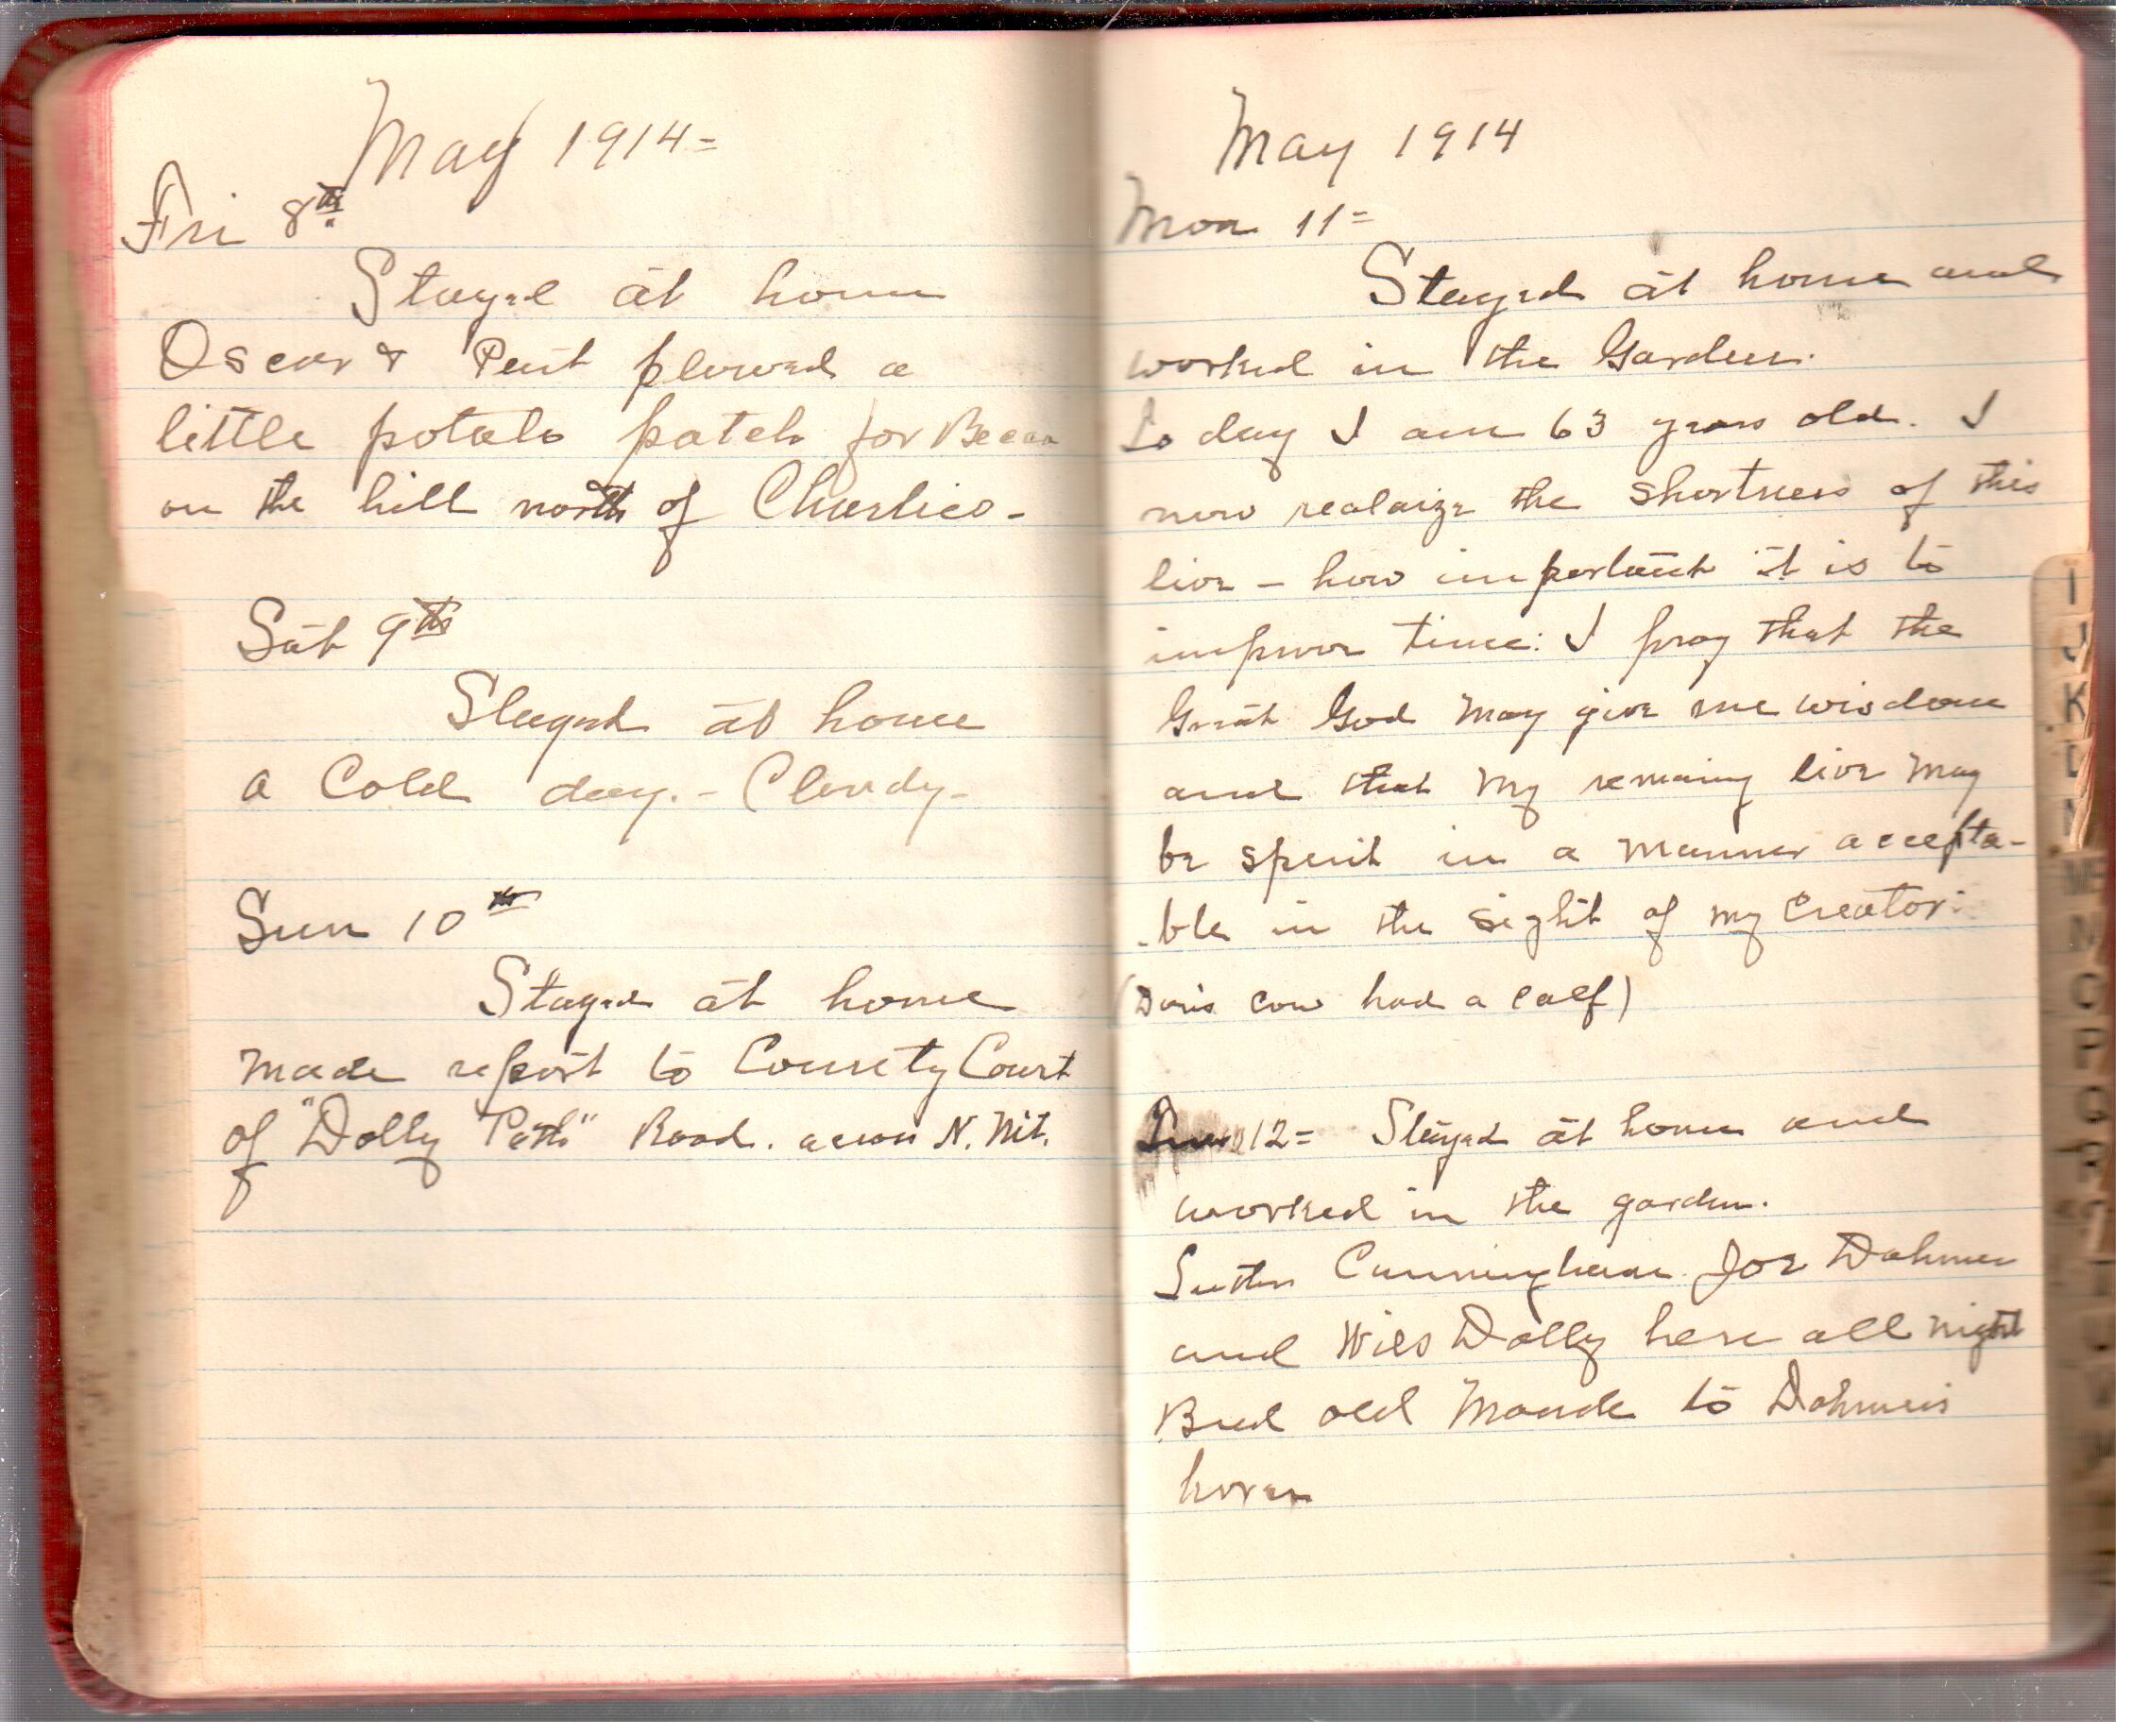 May 1914=
Fri 8th
Stayed at home
Oscar & plowed a
little potato patch for
on the hill north of Charlies-
Sat 9th
Stayed at home
a Cold day.- Cloudy-
Sun 10th
Stayed at home
made report to County Court
of "Dolly Path" Road. across N. Mt.
May 1914
Mon 11=
Stayed at home and
worked in the Garden.
To day I am 63 years old. I
now realaize the shortness of this
live - how important it is to
improve time: I pray that the
Great God may give me wisdom
and that my remaing live may
be spent in a manner accepta-
-ble in the sight of my Creator:
( cow had a calf)
12= Stayed at home and
worked in the garden.
Cunningham Joe Dahmer
and Wils Dolly here all night
Bred old Maude to Dahmers
horse
I
J
K
M
N
O
P
Q
R